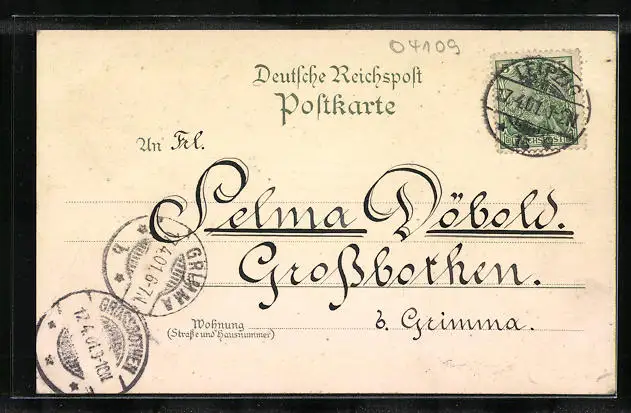 04109
Deutsche Reichspost
Postkarte
An Frl.
Selma Döbold.
Großbothen.
b. Grimma.
Wohnung
(Straße und Hausnummer)
LEIPZIG
17.4.01.
REICHSPOST
GRIMMA
4.01.6-7N.
b
GROSSBOTHEN
17.4.01.9-10N